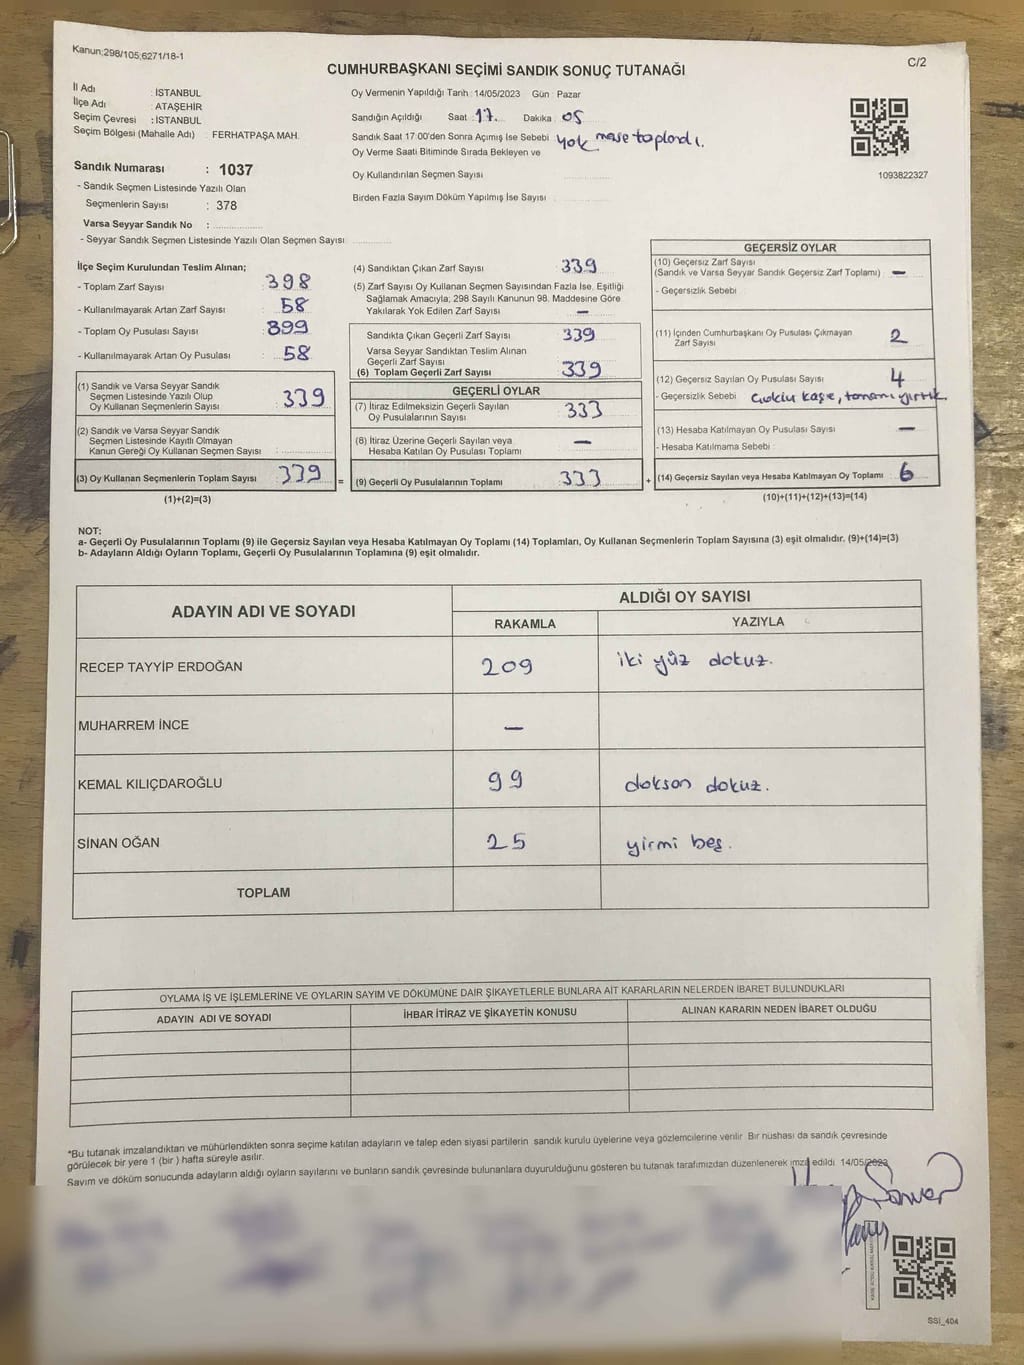 Kanun:298/105;6271/18-1
C/2
CUMHURBAŞKANI SEÇİMİ SANDIK SONUÇ TUTANAĞI
İl Adı : İSTANBUL
İlçe Adı : ATAŞEHİR
Seçim Çevresi : İSTANBUL
Seçim Bölgesi (Mahalle Adı) : FERHATPAŞA MAH.
Sandık Numarası : 1037
- Sandık Seçmen Listesinde Yazılı Olan
Seçmenlerin Sayısı : 378
Varsa Seyyar Sandık No :
- Seyyar Sandık Seçmen Listesinde Yazılı Olan Seçmen Sayısı
Oy Vermenin Yapıldığı Tarih : 14/05/2023 Gün : Pazar
Sandığın Açıldığı Saat : 17 Dakika : 05
Sandık Saat 17:00'den Sonra Açımış İse Sebebi yok mase toplandı.
Oy Verme Saati Bitiminde Sırada Bekleyen ve
Oy Kullandırılan Seçmen Sayısı
Birden Fazla Sayım Döküm Yapılmış İse Sayısı
1093822327
İlçe Seçim Kurulundan Teslim Alınan;
- Toplam Zarf Sayısı : 398
- Kullanılmayarak Artan Zarf Sayısı : 58
- Toplam Oy Pusulası Sayısı : 899
- Kullanılmayarak Artan Oy Pusulası : 58
(1) Sandık ve Varsa Seyyar Sandık
Seçmen Listesinde Yazılı Olup
Oy Kullanan Seçmenlerin Sayısı : 339
(2) Sandık ve Varsa Seyyar Sandık
Seçmen Listesinde Kayıtlı Olmayan
Kanun Gereği Oy Kullanan Seçmen Sayısı :
(3) Oy Kullanan Seçmenlerin Toplam Sayısı : 339
(1)+(2)=(3)
(4) Sandıktan Çıkan Zarf Sayısı : 339
(5) Zarf Sayısı Oy Kullanan Seçmen Sayısından Fazla İse, Eşitliği
Sağlamak Amacıyla, 298 Sayılı Kanunun 98. Maddesine Göre
Yakılarak Yok Edilen Zarf Sayısı : —
Sandıkta Çıkan Geçerli Zarf Sayısı : 339
Varsa Seyyar Sandıktan Teslim Alınan
Geçerli Zarf Sayısı
(6) Toplam Geçerli Zarf Sayısı : 339
GEÇERLİ OYLAR
(7) İtiraz Edilmeksizin Geçerli Sayılan
Oy Pusulalarının Sayısı : 333
(8) İtiraz Üzerine Geçerli Sayılan veya
Hesaba Katılan Oy Pusulası Toplamı : —
= (9) Geçerli Oy Pusulalarının Toplamı : 333
GEÇERSİZ OYLAR
(10) Geçersiz Zarf Sayısı
(Sandık ve Varsa Seyyar Sandık Geçersiz Zarf Toplamı) : —
- Geçersizlik Sebebi :
(11) İçinden Cumhurbaşkanı Oy Pusulası Çıkmayan
Zarf Sayısı : 2
(12) Geçersiz Sayılan Oy Pusulası Sayısı : 4
- Geçersizlik Sebebi : kaşe, tamamı yırtık.
(13) Hesaba Katılmayan Oy Pusulası Sayısı : —
- Hesaba Katılmama Sebebi :
+ (14) Geçersiz Sayılan veya Hesaba Katılmayan Oy Toplamı : 6
(10)+(11)+(12)+(13)=(14)
NOT:
a- Geçerli Oy Pusulalarının Toplamı (9) ile Geçersiz Sayılan veya Hesaba Katılmayan Oy Toplamı (14) Toplamları, Oy Kullanan Seçmenlerin Toplam Sayısına (3) eşit olmalıdır. (9)+(14)=(3)
b- Adayların Aldığı Oyların Toplamı, Geçerli Oy Pusulalarının Toplamına (9) eşit olmalıdır.
ADAYIN ADI VE SOYADI
ALDIĞI OY SAYISI
RAKAMLA YAZIYLA
RECEP TAYYİP ERDOĞAN 209 iki yüz dokuz.
MUHARREM İNCE —
KEMAL KILIÇDAROĞLU 99 doksan dokuz.
SİNAN OĞAN 25 yirmi beş.
TOPLAM
OYLAMA İŞ VE İŞLEMLERİNE VE OYLARIN SAYIM VE DÖKÜMÜNE DAİR ŞİKAYETLERLE BUNLARA AİT KARARLARIN NELERDEN İBARET BULUNDUKLARI
ADAYIN ADI VE SOYADI İHBAR İTİRAZ VE ŞİKAYETİN KONUSU ALINAN KARARIN NEDEN İBARET OLDUĞU
*Bu tutanak imzalandıktan ve mühürlendikten sonra seçime katılan adayların ve talep eden siyasi partilerin sandık kurulu üyelerine veya gözlemcilerine verilir. Bir nüshası da sandık çevresinde
görülecek bir yere 1 (bir ) hafta süreyle asılır.
Sayım ve döküm sonucunda adayların aldığı oyların sayılarını ve bunların sandık çevresinde bulunanlara duyurulduğunu gösteren bu tutanak tarafımızdan düzenlenerek imza edildi. 14/05/2023
SSI_404